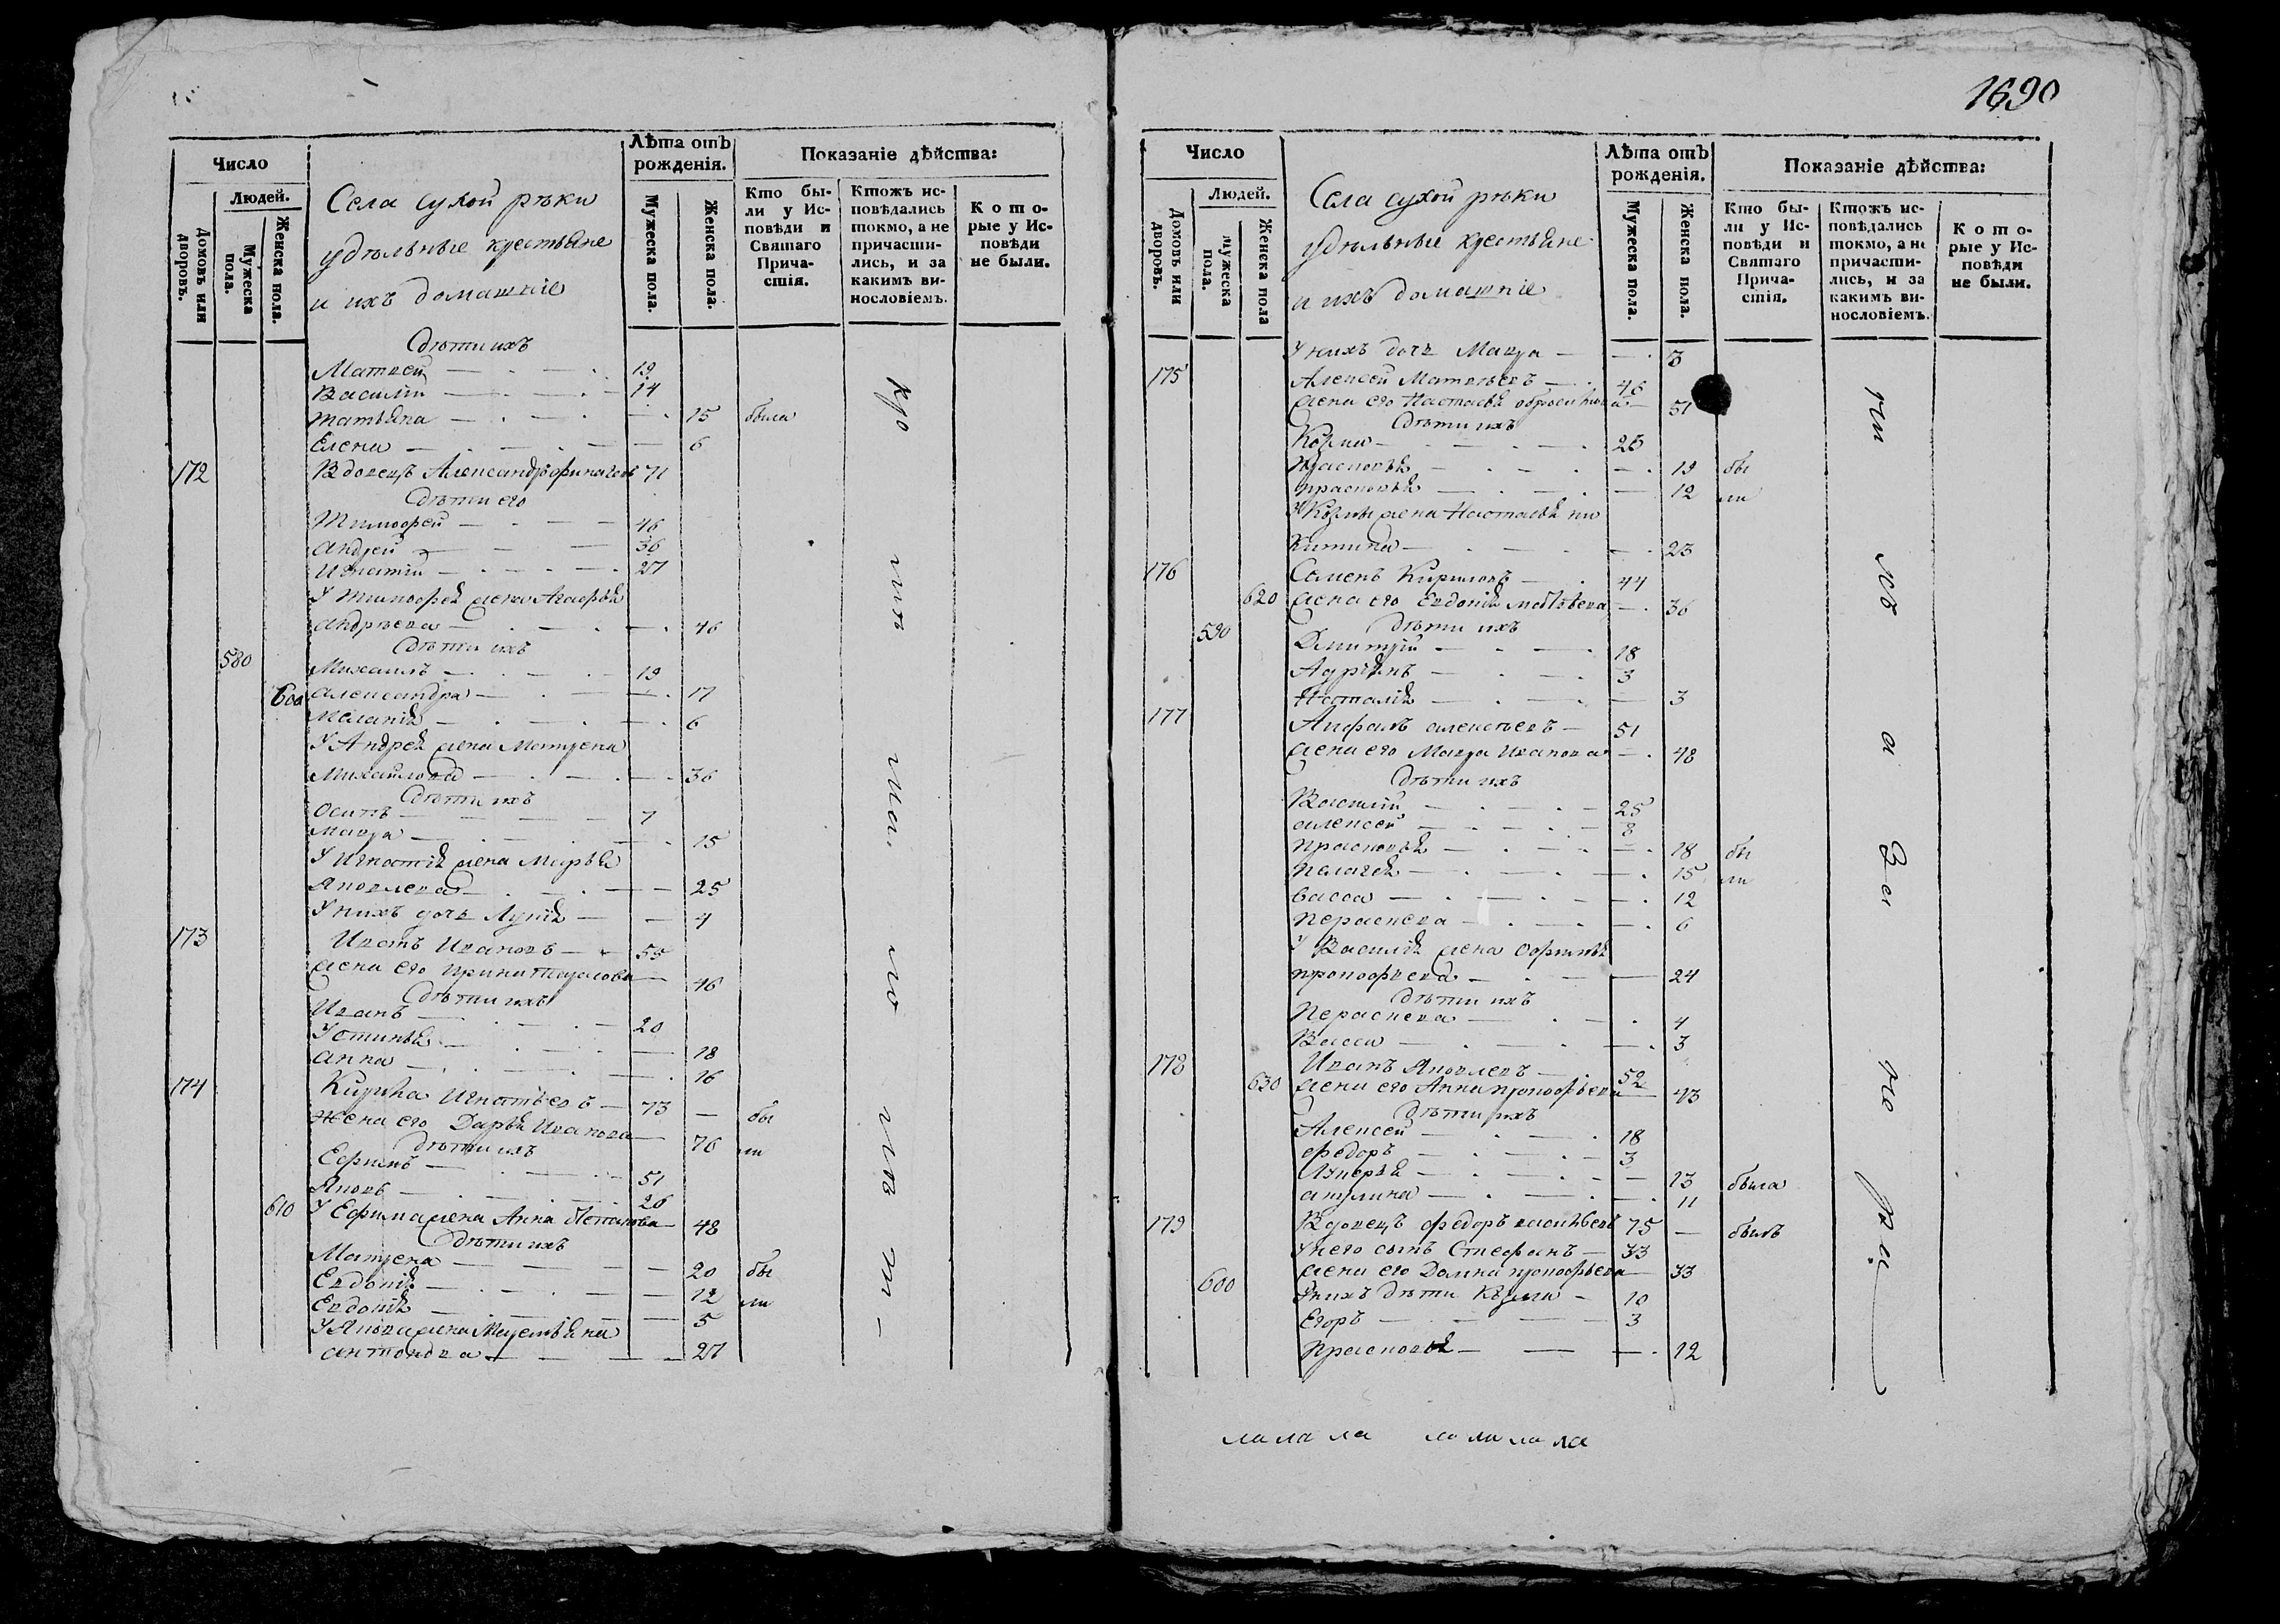 1690
Число
Людей.
Домовъ или дворовъ.
Мужеска пола.
Женска пола.
Села сухой рѣки
удѣльные крестьяне
и ихъ домашніе
Лѣта отъ рожденія.
Мужеска пола.
Женска пола.
Показаніе дѣйства:
Кто бы-
ли у Ис-
повѣди и
Святаго
Прича-
стія.
Ктожъ ис-
повѣдались
токмо, а не
причасти-
лись, и за
какимъ ви-
нословіемъ.
Кото-
рые у Ис-
повѣди
не были.
дѣти ихъ
Матвей 19
Василій 14
татьяна 15 была
Елена 6
172 Вдовецъ Александръ 71
дѣти его
Тимофей 46
андрей 36
Игнатій 27
У Тимофея жена Агафья
андреева 46
дѣти ихъ
580 Михаилъ 19
600 александра 17
Меланія 6
У Андрея жена Матрена
Михайлова 36
дѣти ихъ
Осипъ 7
Мавра 15
У Игнатія жена Марья
Яковлева 25
У нихъ дочь Лукія 4
173 Иванъ Ивановъ 55
жена его Ирина Тарасова 46
дѣти ихъ
Иванъ 20
Устинья 18
анна 16
174 Кирила Игнатьевъ 73 — бы
Жена его Дарья Иванова 76 ли
дѣти ихъ
Ефимъ 51
Яковъ 26
610 У Ефима жена Анна Степанова 48
дѣти ихъ
Матрена 20 бы
Евдокія 12 ли
Евдокія 5
У Якова жена
антонова 27
Число
Людей.
Домовъ или дворовъ.
мужеска пола.
Женска пола
Села сухой рѣки
удѣльные крестьяне
и ихъ домашніе
Лѣта отъ рожденія.
Мужеска пола.
Женска пола.
Показаніе дѣйства:
Кто бы-
ли у Ис-
повѣди и
Святаго
Прича-
стія.
Ктожъ ис-
повѣдались
токмо, а не
причасти-
лись, и за
какимъ ви-
нословіемъ.
Кото-
рые у Ис-
повѣди
не были.
У нихъ дочь Мавра 3
175 Алексей Матвѣевъ 46
жена его Настасья 51
дѣти ихъ
Козма 23
Прасковья 19 бы
прасковья 12 ли
У Козмы жена Настасья ни
китина 23
176 Семенъ Кириловъ 44
620 жена его Евдокія Матвѣева 36
590 дѣти ихъ
Димитрій 18
Адріянъ 3
Наталія 3
177 алексѣевъ 51
жена его Мавра Иванова 48
дѣти ихъ
Василій 25
алексей 8
прасковья 18 бы
Пелагея 15 ли
васса 12
Параскева 6
У Василія жена Софья
прокофьева 24
дѣти ихъ
Параскева 4
Васса 3
178 Иванъ Яковлевъ 52
630 жена его Анна прокофьева 43
дѣти ихъ
Алексей 18
федоръ 3
Лукерья 13 была
акулина 11
179 Вдовецъ федоръ васильевъ 75 — былъ
У него сынъ Стефанъ 33
жена его Домна прокофьева 33
600 У нихъ дѣти Козма 10
Егоръ 3
прасковья 12